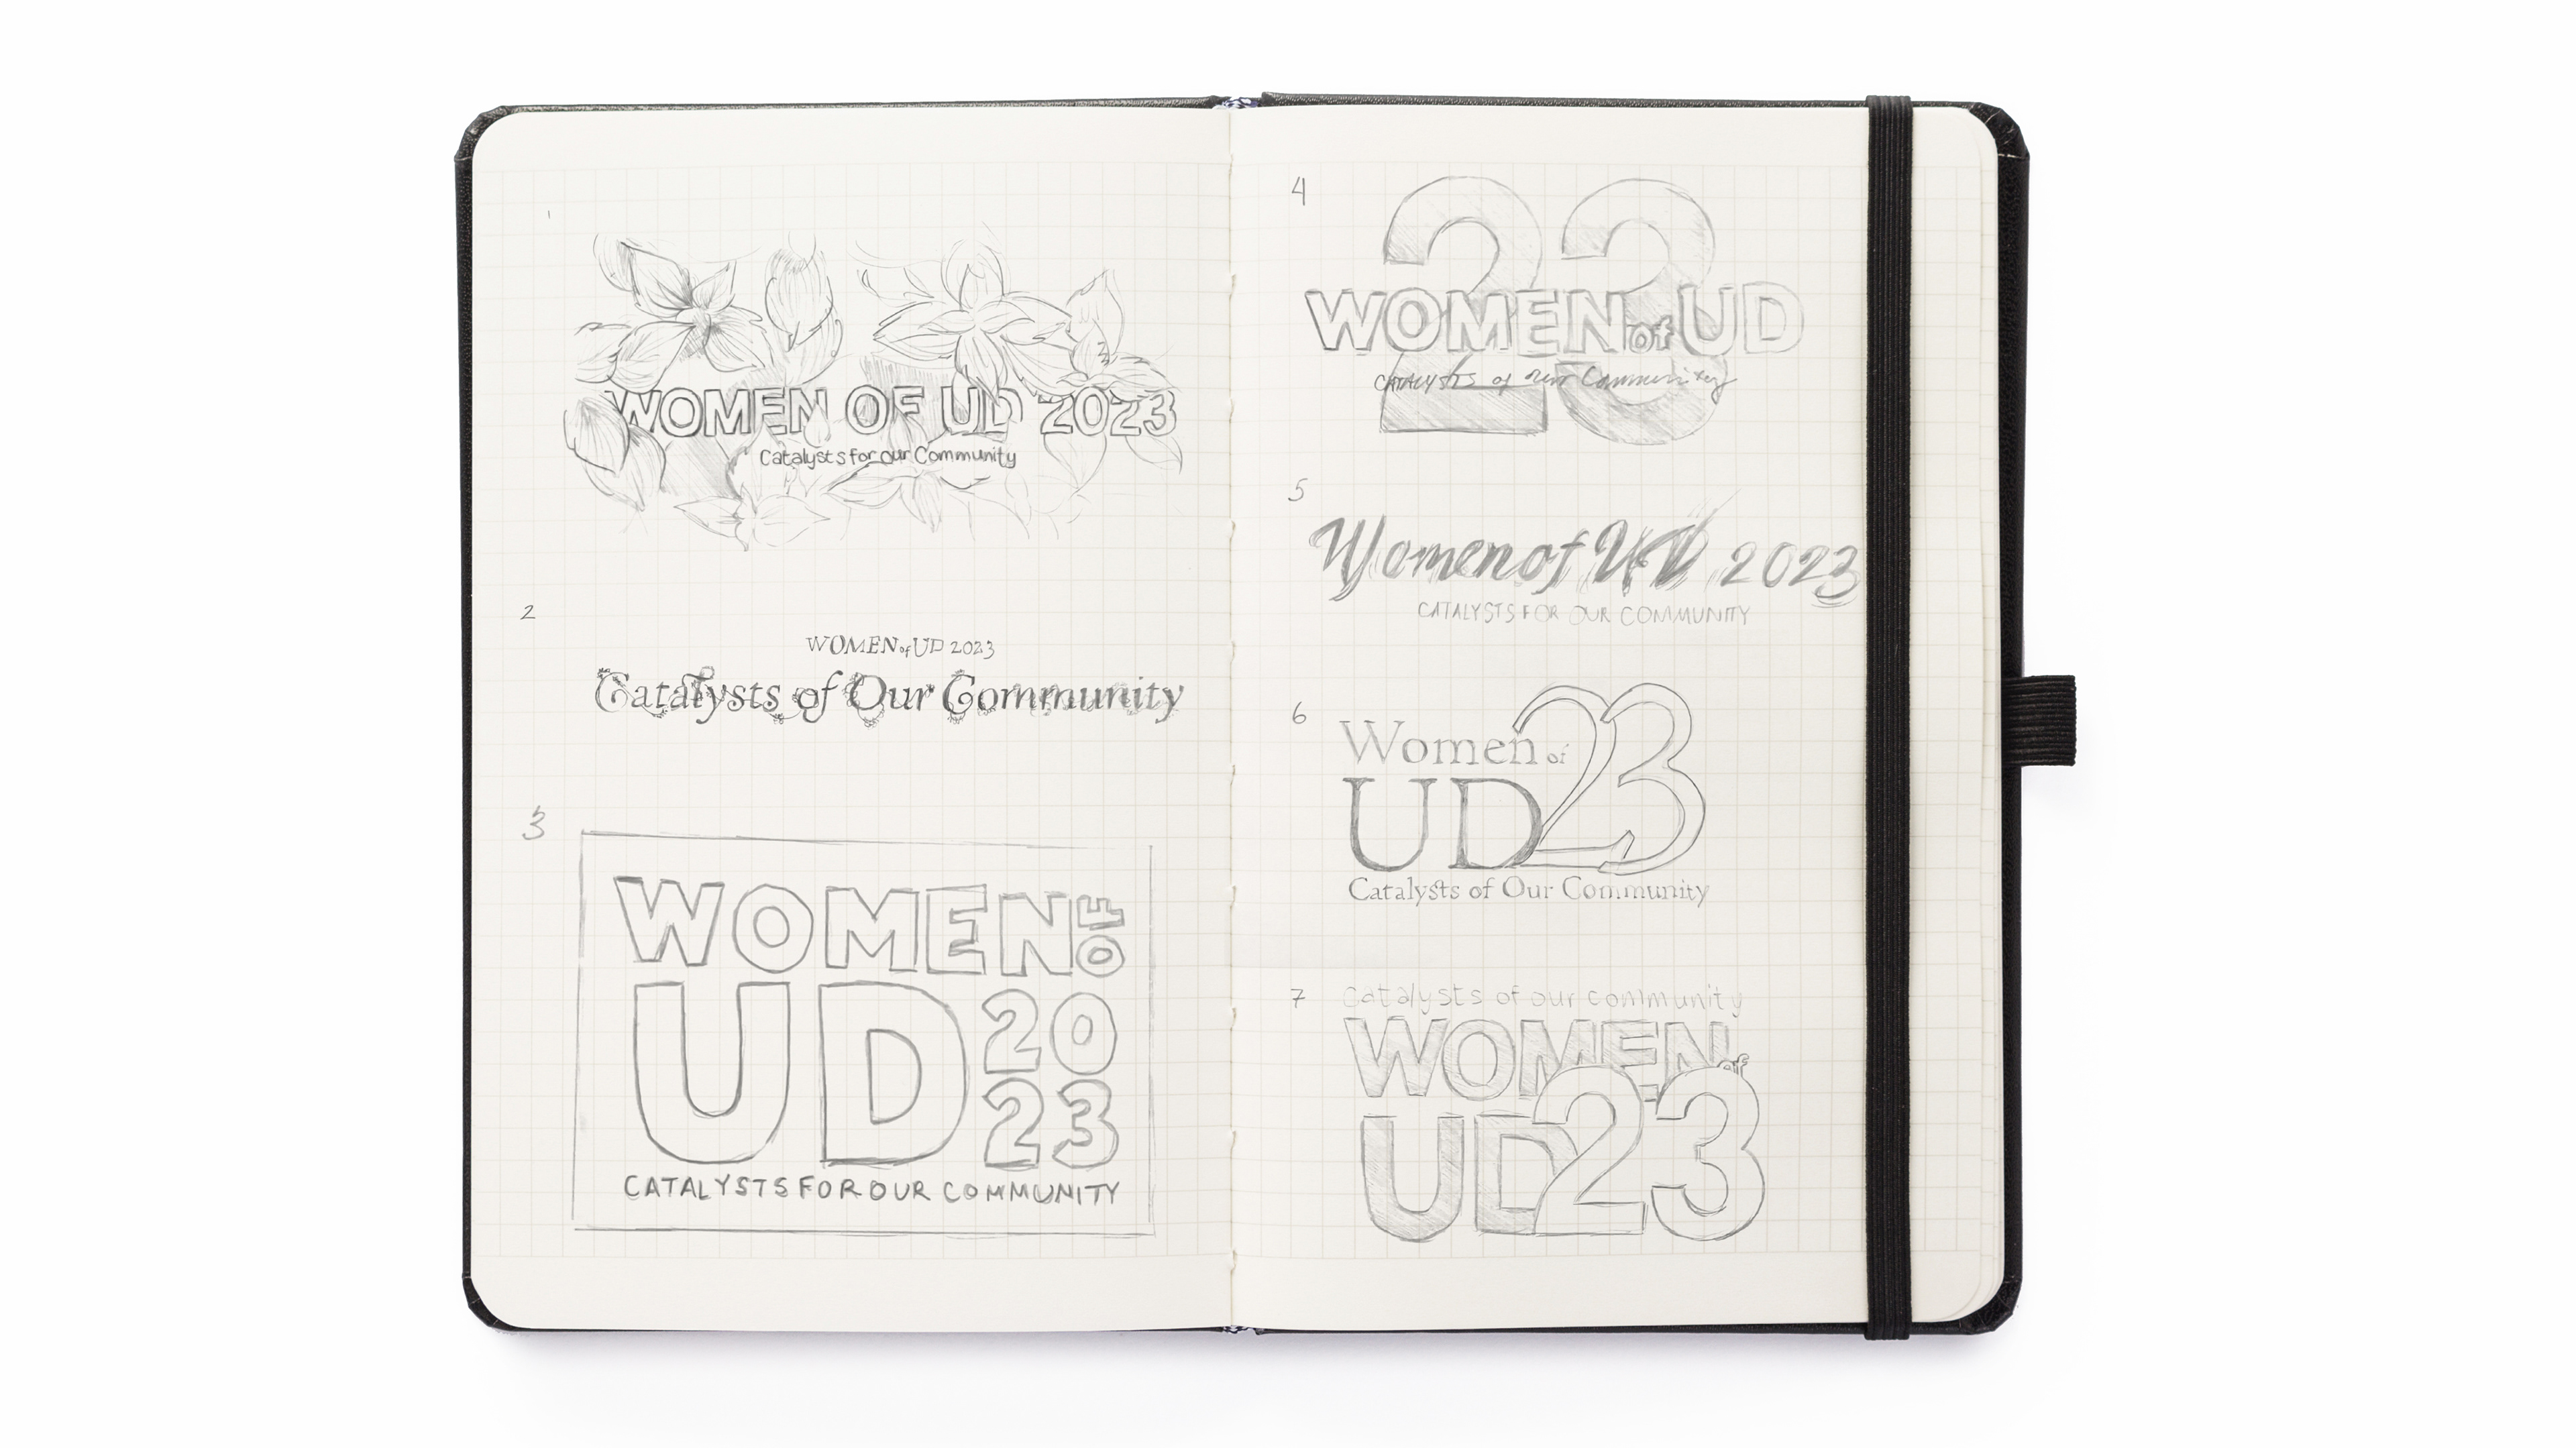 1
WOMEN OF UD 2023
Catalysts for our Community
2
WOMEN of UD 2023
Catalysts of Our Community
3
WOMEN OF
UD 20
23
CATALYSTS FOR OUR COMMUNITY
4
23
WOMEN of UD
CATALYSTS of our Community
5
Women of UD 2023
CATALYSTS FOR OUR COMMUNITY
6
Women of
UD 23
Catalysts of Our Community
7
Catalysts of our community
WOMEN of
UD 23